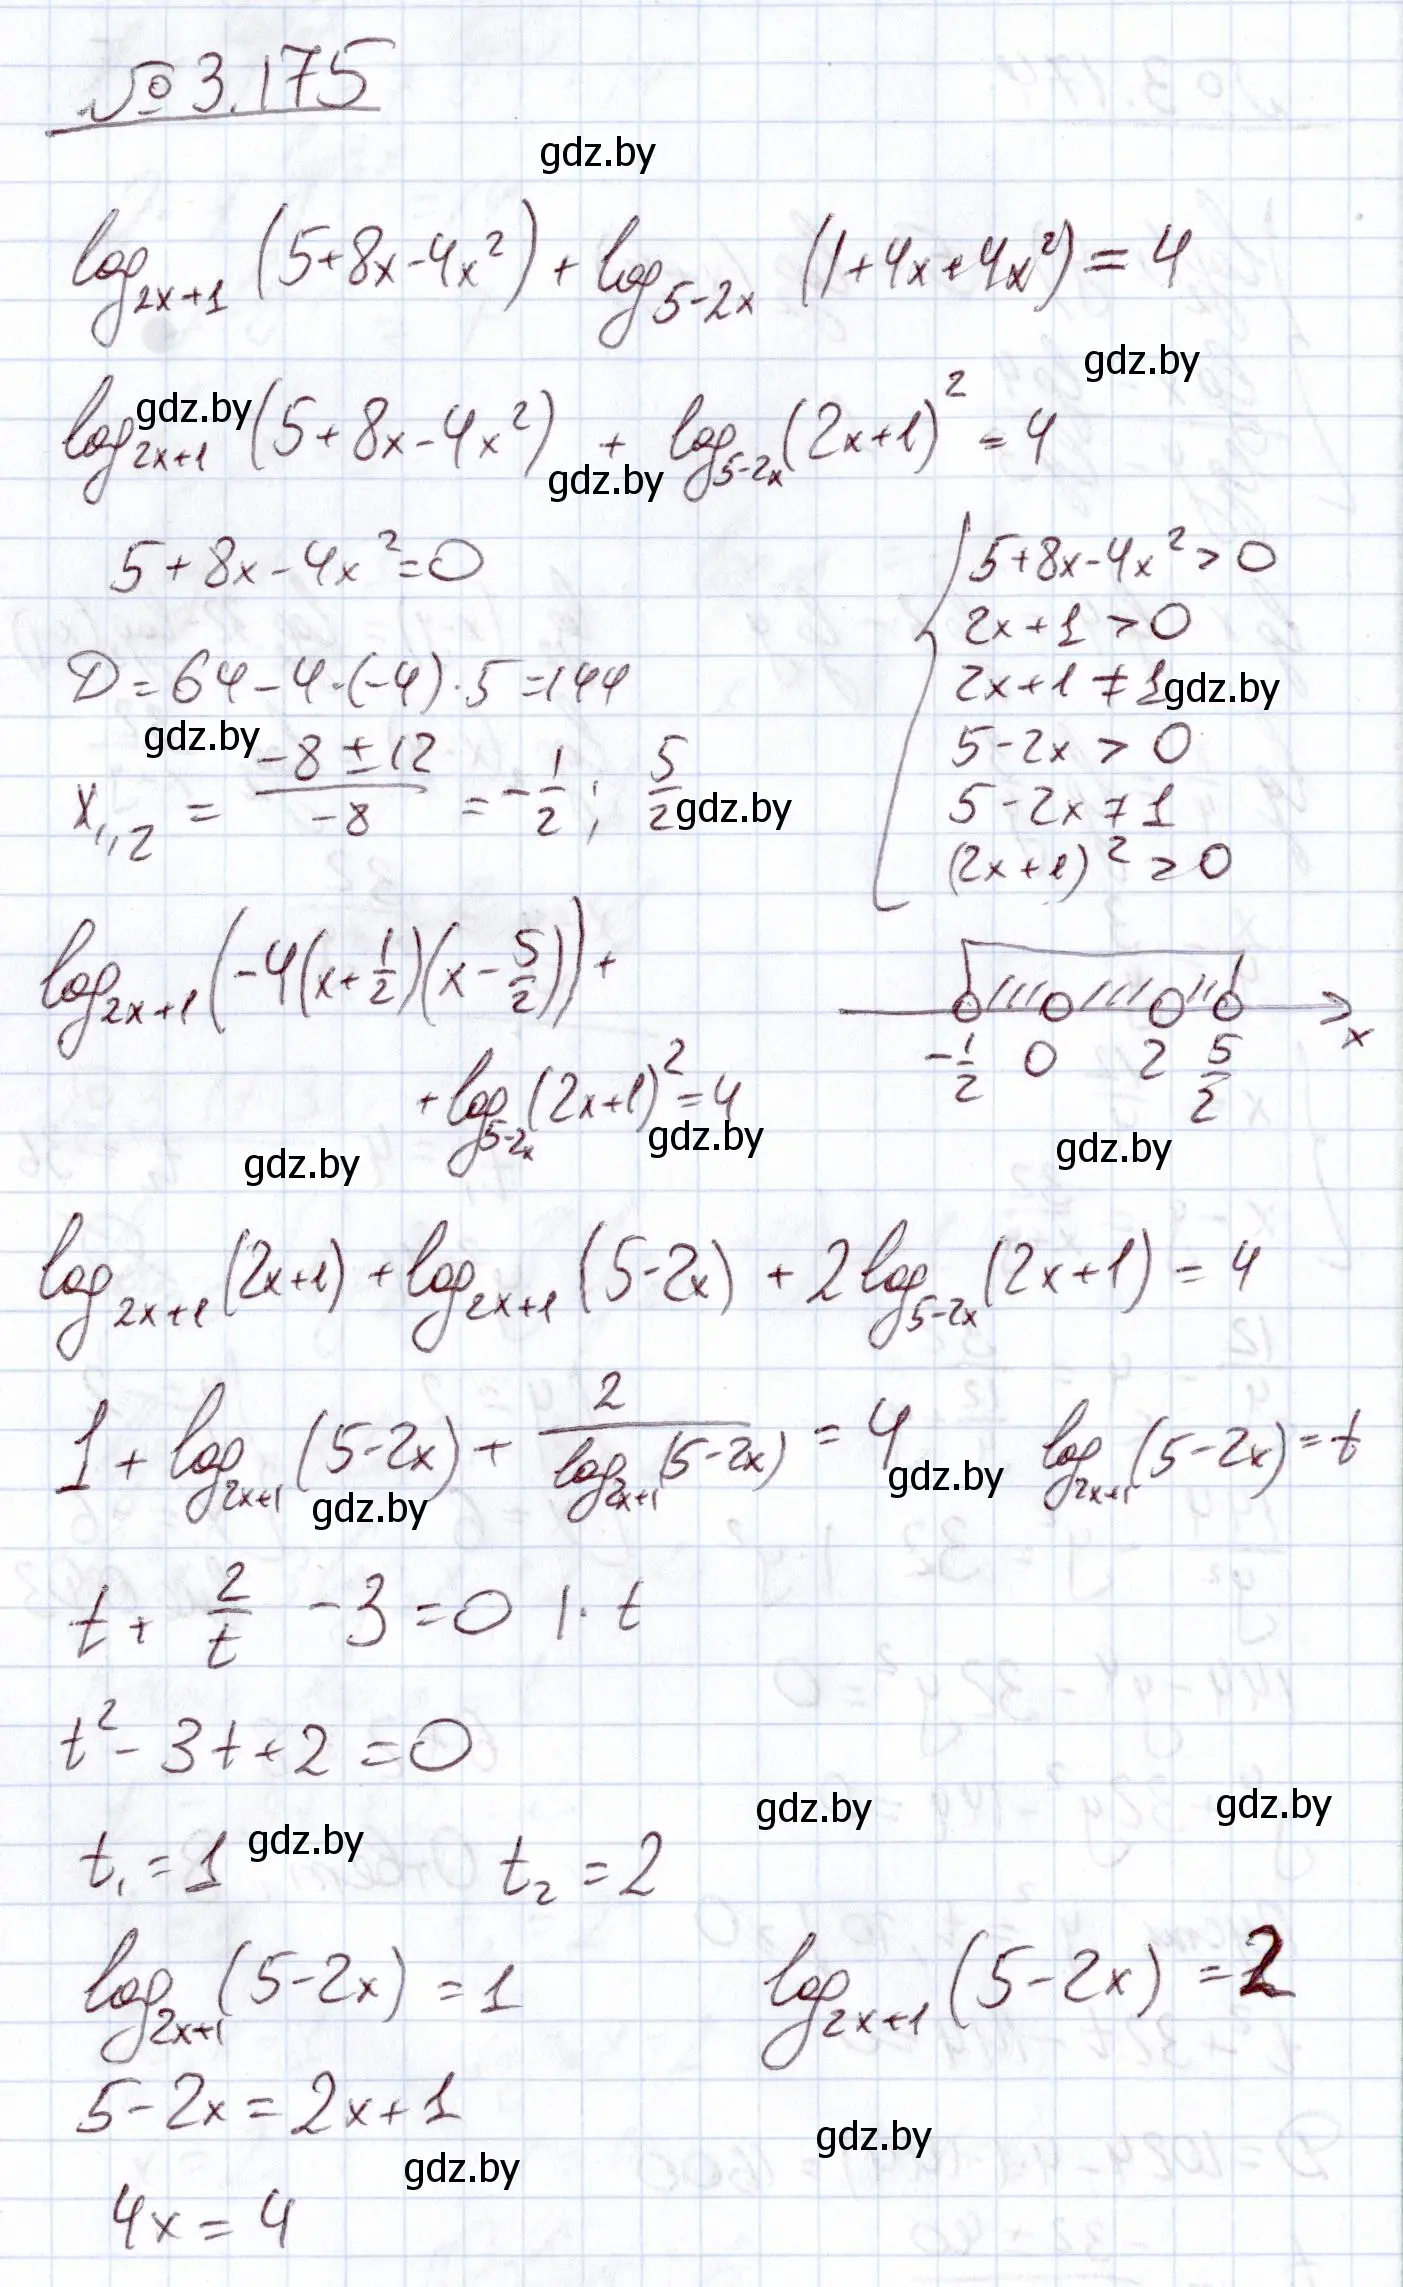 № 3.175
gdz.by
log_{2x+1} (5+8x-4x²) + log_{5-2x} (1+4x+4x²) = 4
gdz.by
gdz.by
log_{2x+1} (5+8x-4x²) + log_{5-2x} (2x+1)² = 4
gdz.by
5+8x-4x²=0
5+8x-4x²>0
2x+1>0
2x+1≠1
gdz.by
5-2x>0
5-2x≠1
(2x+1)²>0
D=64-4·(-4)·5=144
gdz.by
x_{1,2} = (-8±12)/(-8) = -1/2; 5/2
gdz.by
log_{2x+1} (-4(x+1/2)(x-5/2)) +
+ log_{5-2x} (2x+1)² = 4
-1/2 0 2 5/2 x
gdz.by
gdz.by
gdz.by
log_{2x+1} (2x+1) + log_{2x+1} (5-2x) + 2log_{5-2x} (2x+1) = 4
1 + log_{2x+1} (5-2x) + 2/(log_{2x+1} (5-2x)) = 4
gdz.by
log_{2x+1} (5-2x) = t
gdz.by
t + 2/t - 3 = 0 |· t
t² - 3t + 2 = 0
gdz.by
gdz.by
gdz.by
t₁ = 1 t₂ = 2
log_{2x+1} (5-2x) = 1 log_{2x+1} (5-2x) = 2
5-2x = 2x+1
gdz.by
gdz.by
4x = 4